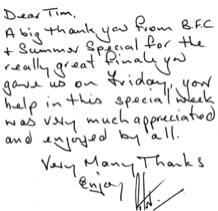 Dear Tim,
A big thank you from B.F.C
+ Summer Special for the
really great finale you
gave us on Friday, your
help in this special week
was very much appreciated
and enjoyed by all.
Very Many Thanks
Enjoy